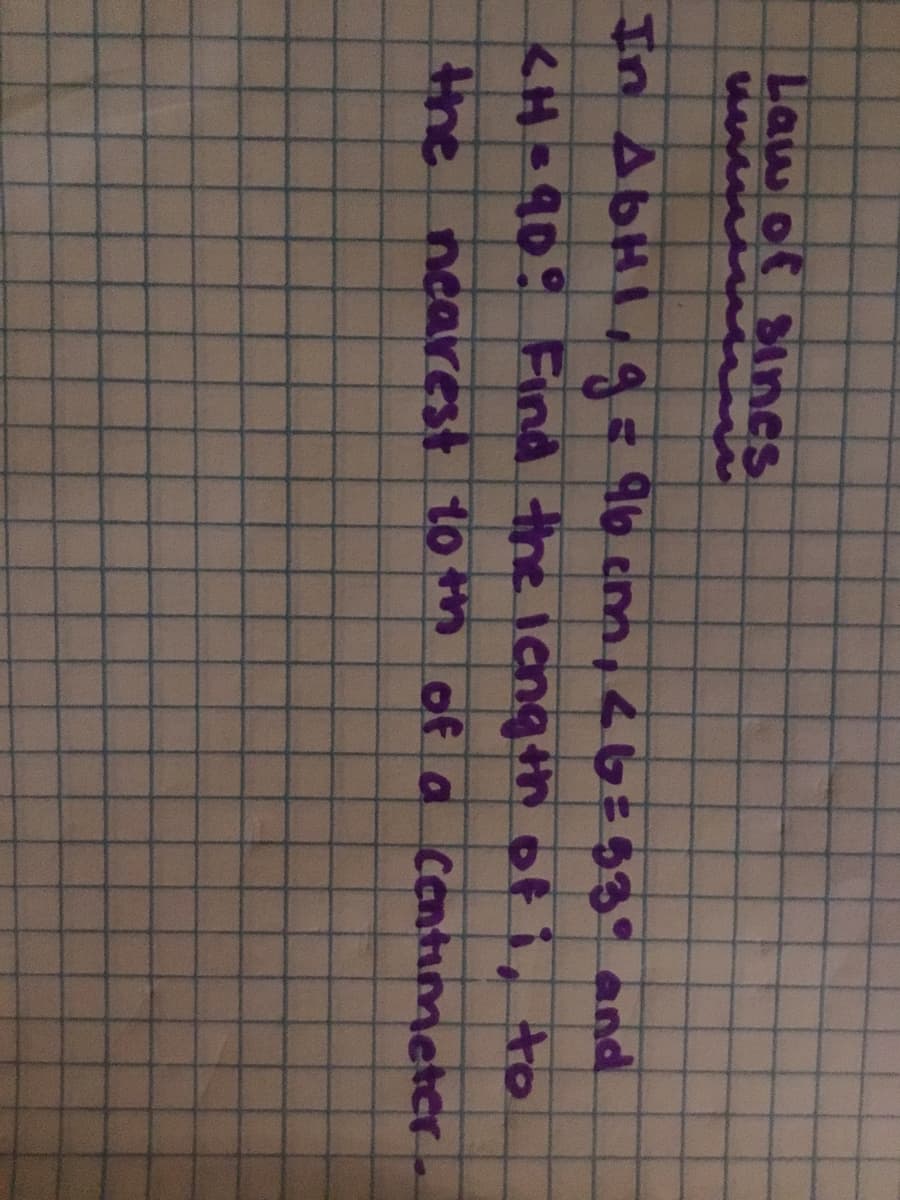 Law of sines
In ΔGHI, g = 96 cm, <G = 53° and
<H = 90°. Find the length of i, to
the nearest 10th of a centimeter.